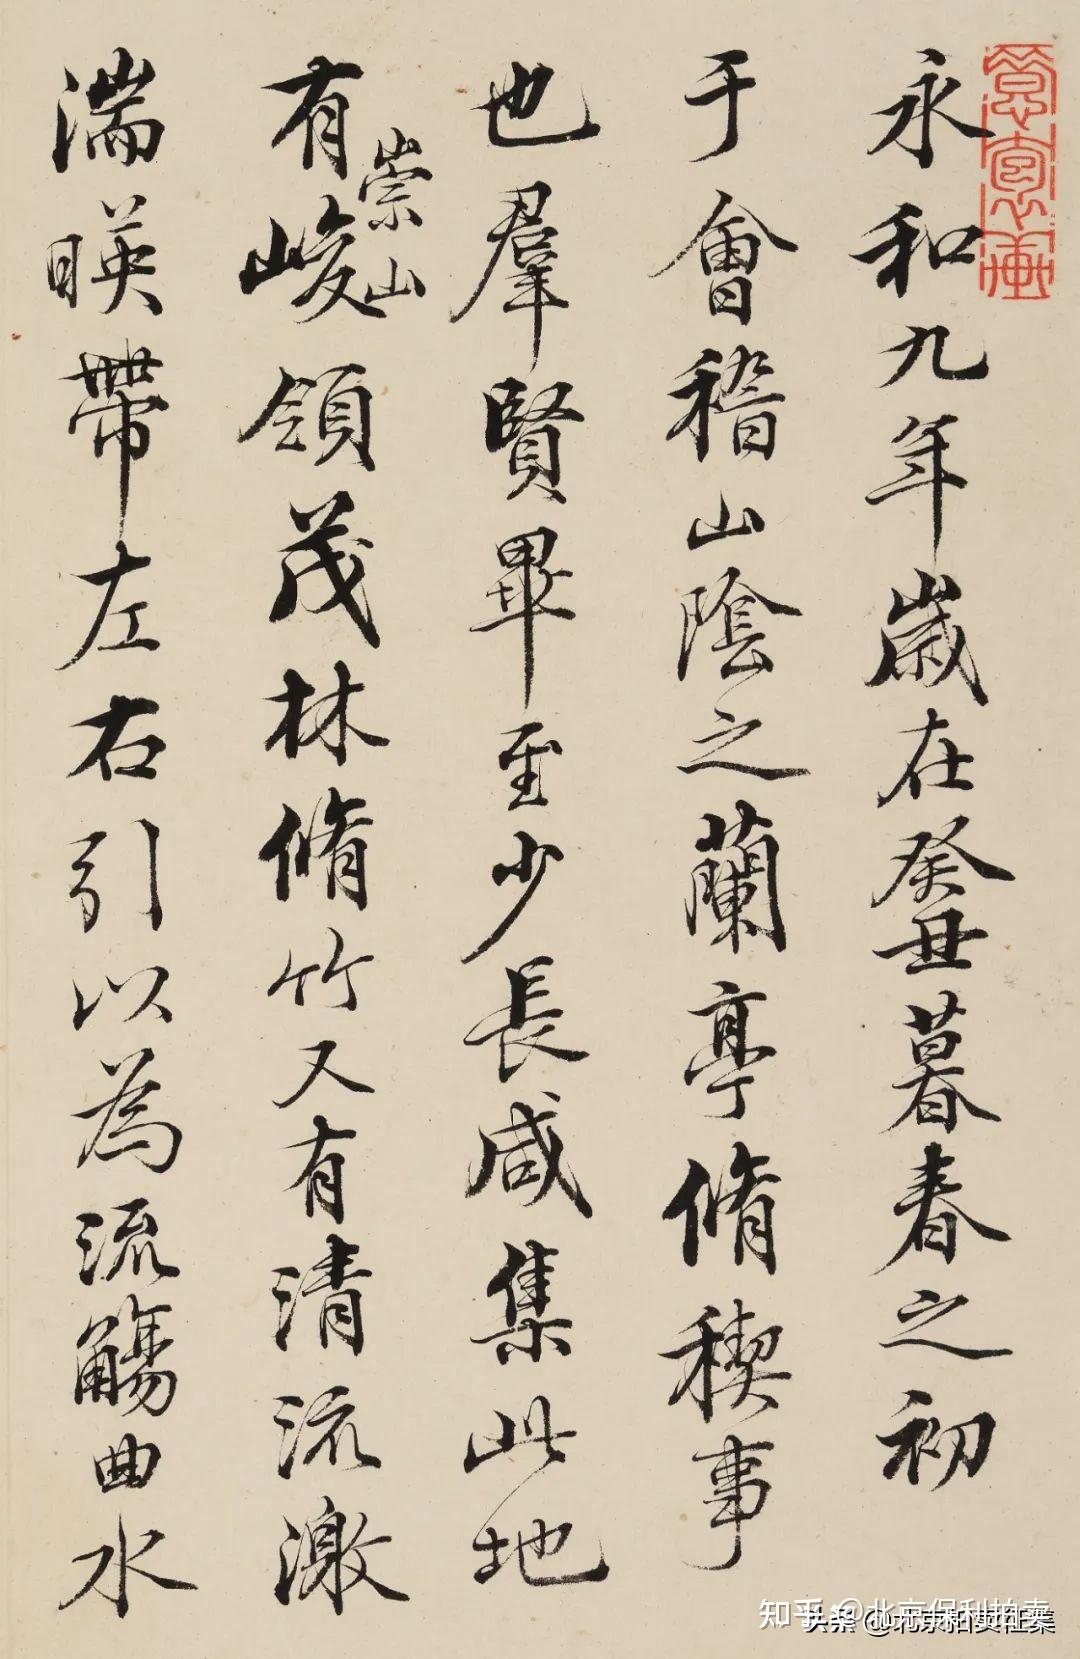 永和九年歲在癸丑暮春之初
于會稽山陰之蘭亭脩稧事
也羣賢畢至少長咸集此地
崇山
有峻領茂林脩竹又有清流激
湍暎帶左右引以為流觴曲水
知乎 @北京保利拍卖
头条 @北京拍卖征集